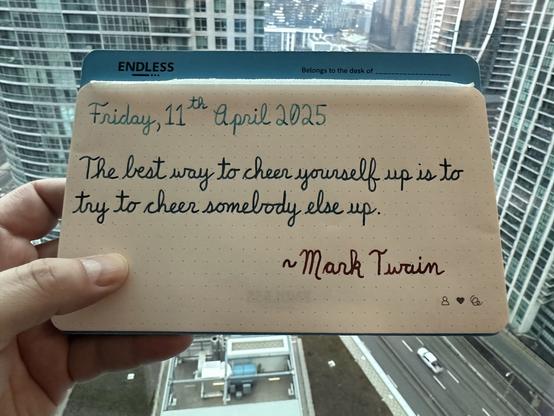 ENDLESS
Belongs to the desk of
Friday, 11th April 2025
The best way to cheer yourself up is to
try to cheer somebody else up.
~Mark Twain